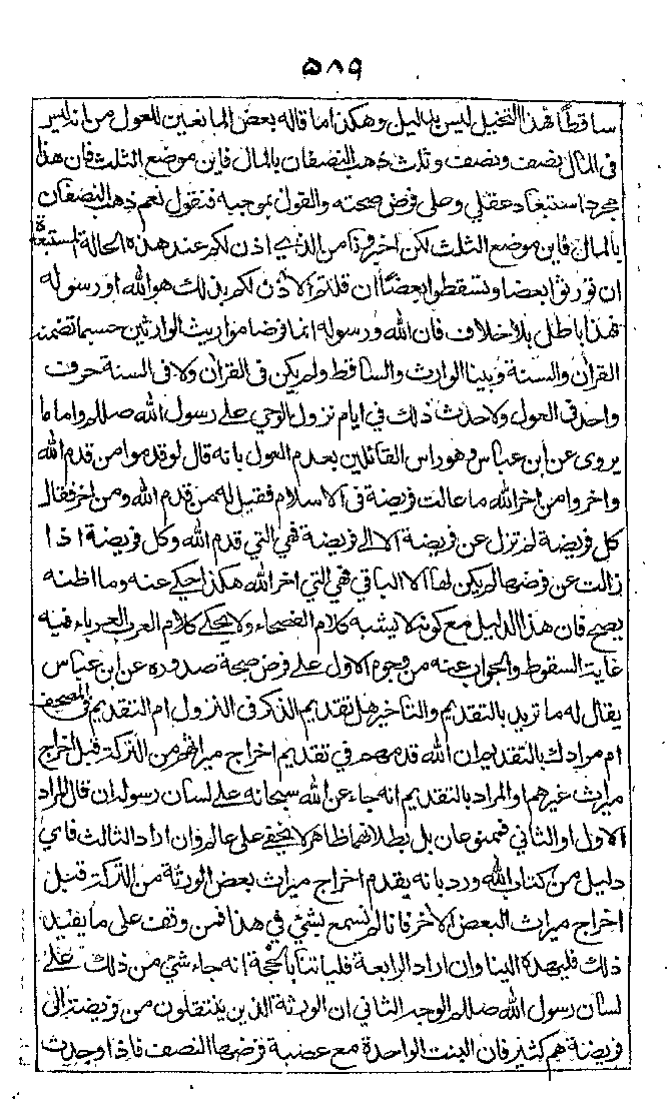 ٥٨٩
ساقطًا فهذا التخيل ليس بدليل وهكذا ما قاله بعض المانعين للعول من انه ليس
فى المال نصف ونصف وثلث ذهب النصفان بالمال فاين موضع الثلث فان هذا
مجرد استبعاد عقلي وعلى فرض صحته والقول بموجبه فنقول نعم ذهب النصفان
بالمال فاين موضع الثلث لكن اخبرونا من الذي اذن لكم عند هذه الحالة المستبعدة
ان تورثوا بعضا وتسقطوا بعضا ان قلتم الاذن لكم بذلك هو الله او رسوله
فهذا باطل بلا خلاف فان الله ورسوله انما فرضا مواريث الوارثين حسبما تضمنه
القران والسنة وبينا الوارث والساقط ولم يكن فى القران ولا فى السنة حرف
واحد فى العول ولا حدث ذلك في ايام نزول الوحي على رسول الله صللم واما ما
يروى عن ابن عباس وهو راس القائلين بعدم العول بانه قال لو قدموا من قدم الله
واخروا من اخر الله ما عالت فريضة فى الاسلام فقيل له من قدم الله ومن اخر فقال
كل فريضة لم تزل عن فريضة الا الى فريضة فهي التي قدم الله وكل فريضة اذا
زالت عن فرضها لم يكن لها الا الباقي فهي التي اخر الله هكذا حكى عنه وما اظنه
يصح فان هذا الدليل مع كونه لا يشبه كلام الفصحاء ولا يحكي كلام العرب العرباء فيه
غاية السقوط والجواب عنه من وجوه الاول على فرض صحة صدوره عن ابن عباس
يقال له ما تريد بالتقديم والتاخير هل تقديم الذكر فى النزول ام التقديم فى المصحف
ام مرادك بالتقديم ان الله قدمهم في تقديم اخراج ميراثهم من التركة قبل اخراج
ميراث غيرهم او المراد بالتقديم انه جاء عن الله سبحانه على لسان رسوله ان قال المراد
الاول او الثاني فممنوعان بل بطلانهما ظاهر لا يخفى على عالم وان اراد الثالث فاي
دليل من كتاب الله ورد بانه يقدم اخراج ميراث بعض الورثة من التركة قبل
اخراج ميراث البعض الآخر فانا لم نسمع بشئ في هذا فمن وقف على ما يفيد
ذلك فليهده الينا وان اراد الرابعة فلياتنا بالحجة انه جاء شئ من ذلك على
لسان رسول الله صللم الوجه الثاني ان الورثة الذين ينتقلون من فريضة الى
فريضة هم كثير فان البنت الواحدة مع عصبة فرضها النصف فاذا وجدت